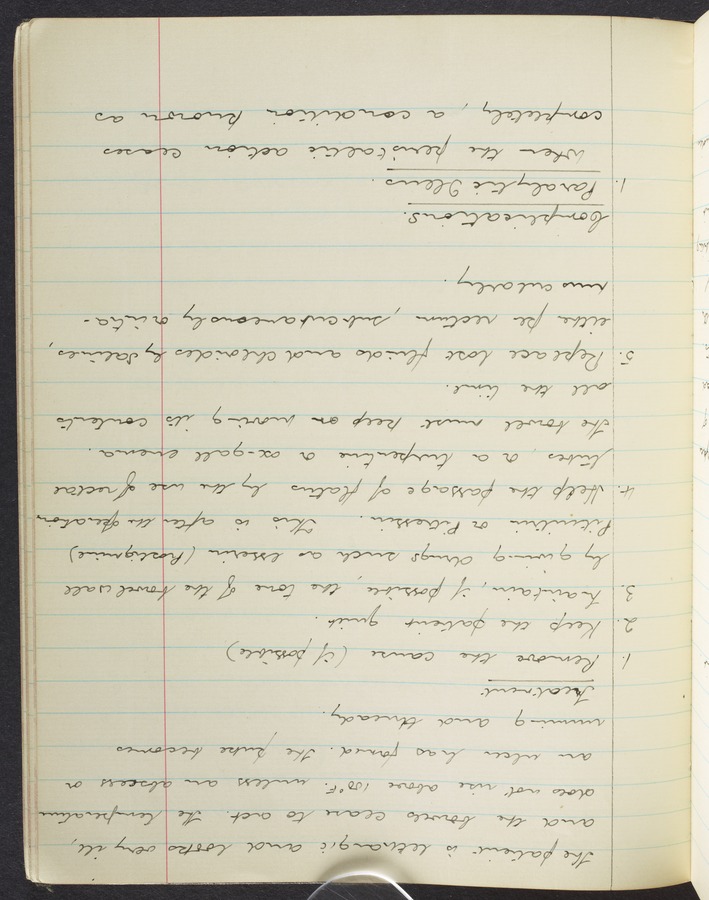 The patient is lethargic and looks very ill,
and the bowels cease to act. The temperature
does not rise above 100°F. unless an abscess or
an ulcer has formed. The pulse becomes
running and thready.
Treatment
1. Remove the cause (if possible)
2. Keep the patient quiet.
3. Maintain, if possible, the tone of the bowel wall
by giving drugs such as Eserin (Prostigmine)
Pituitrin or Pitressin. This is after the operation
4. Help the passage of flatus by the use of rectal
tubes, or a turpentine or ox-gall enema.
The bowel must keep on moving its contents
all the time.
5. Replace lost fluids and chlorides by salines,
either per rectum, subcutaneously or intra-
muscularly.
Complications.
1. Paralytic Ileus.
When the peristaltic action ceases
completely, a condition known as